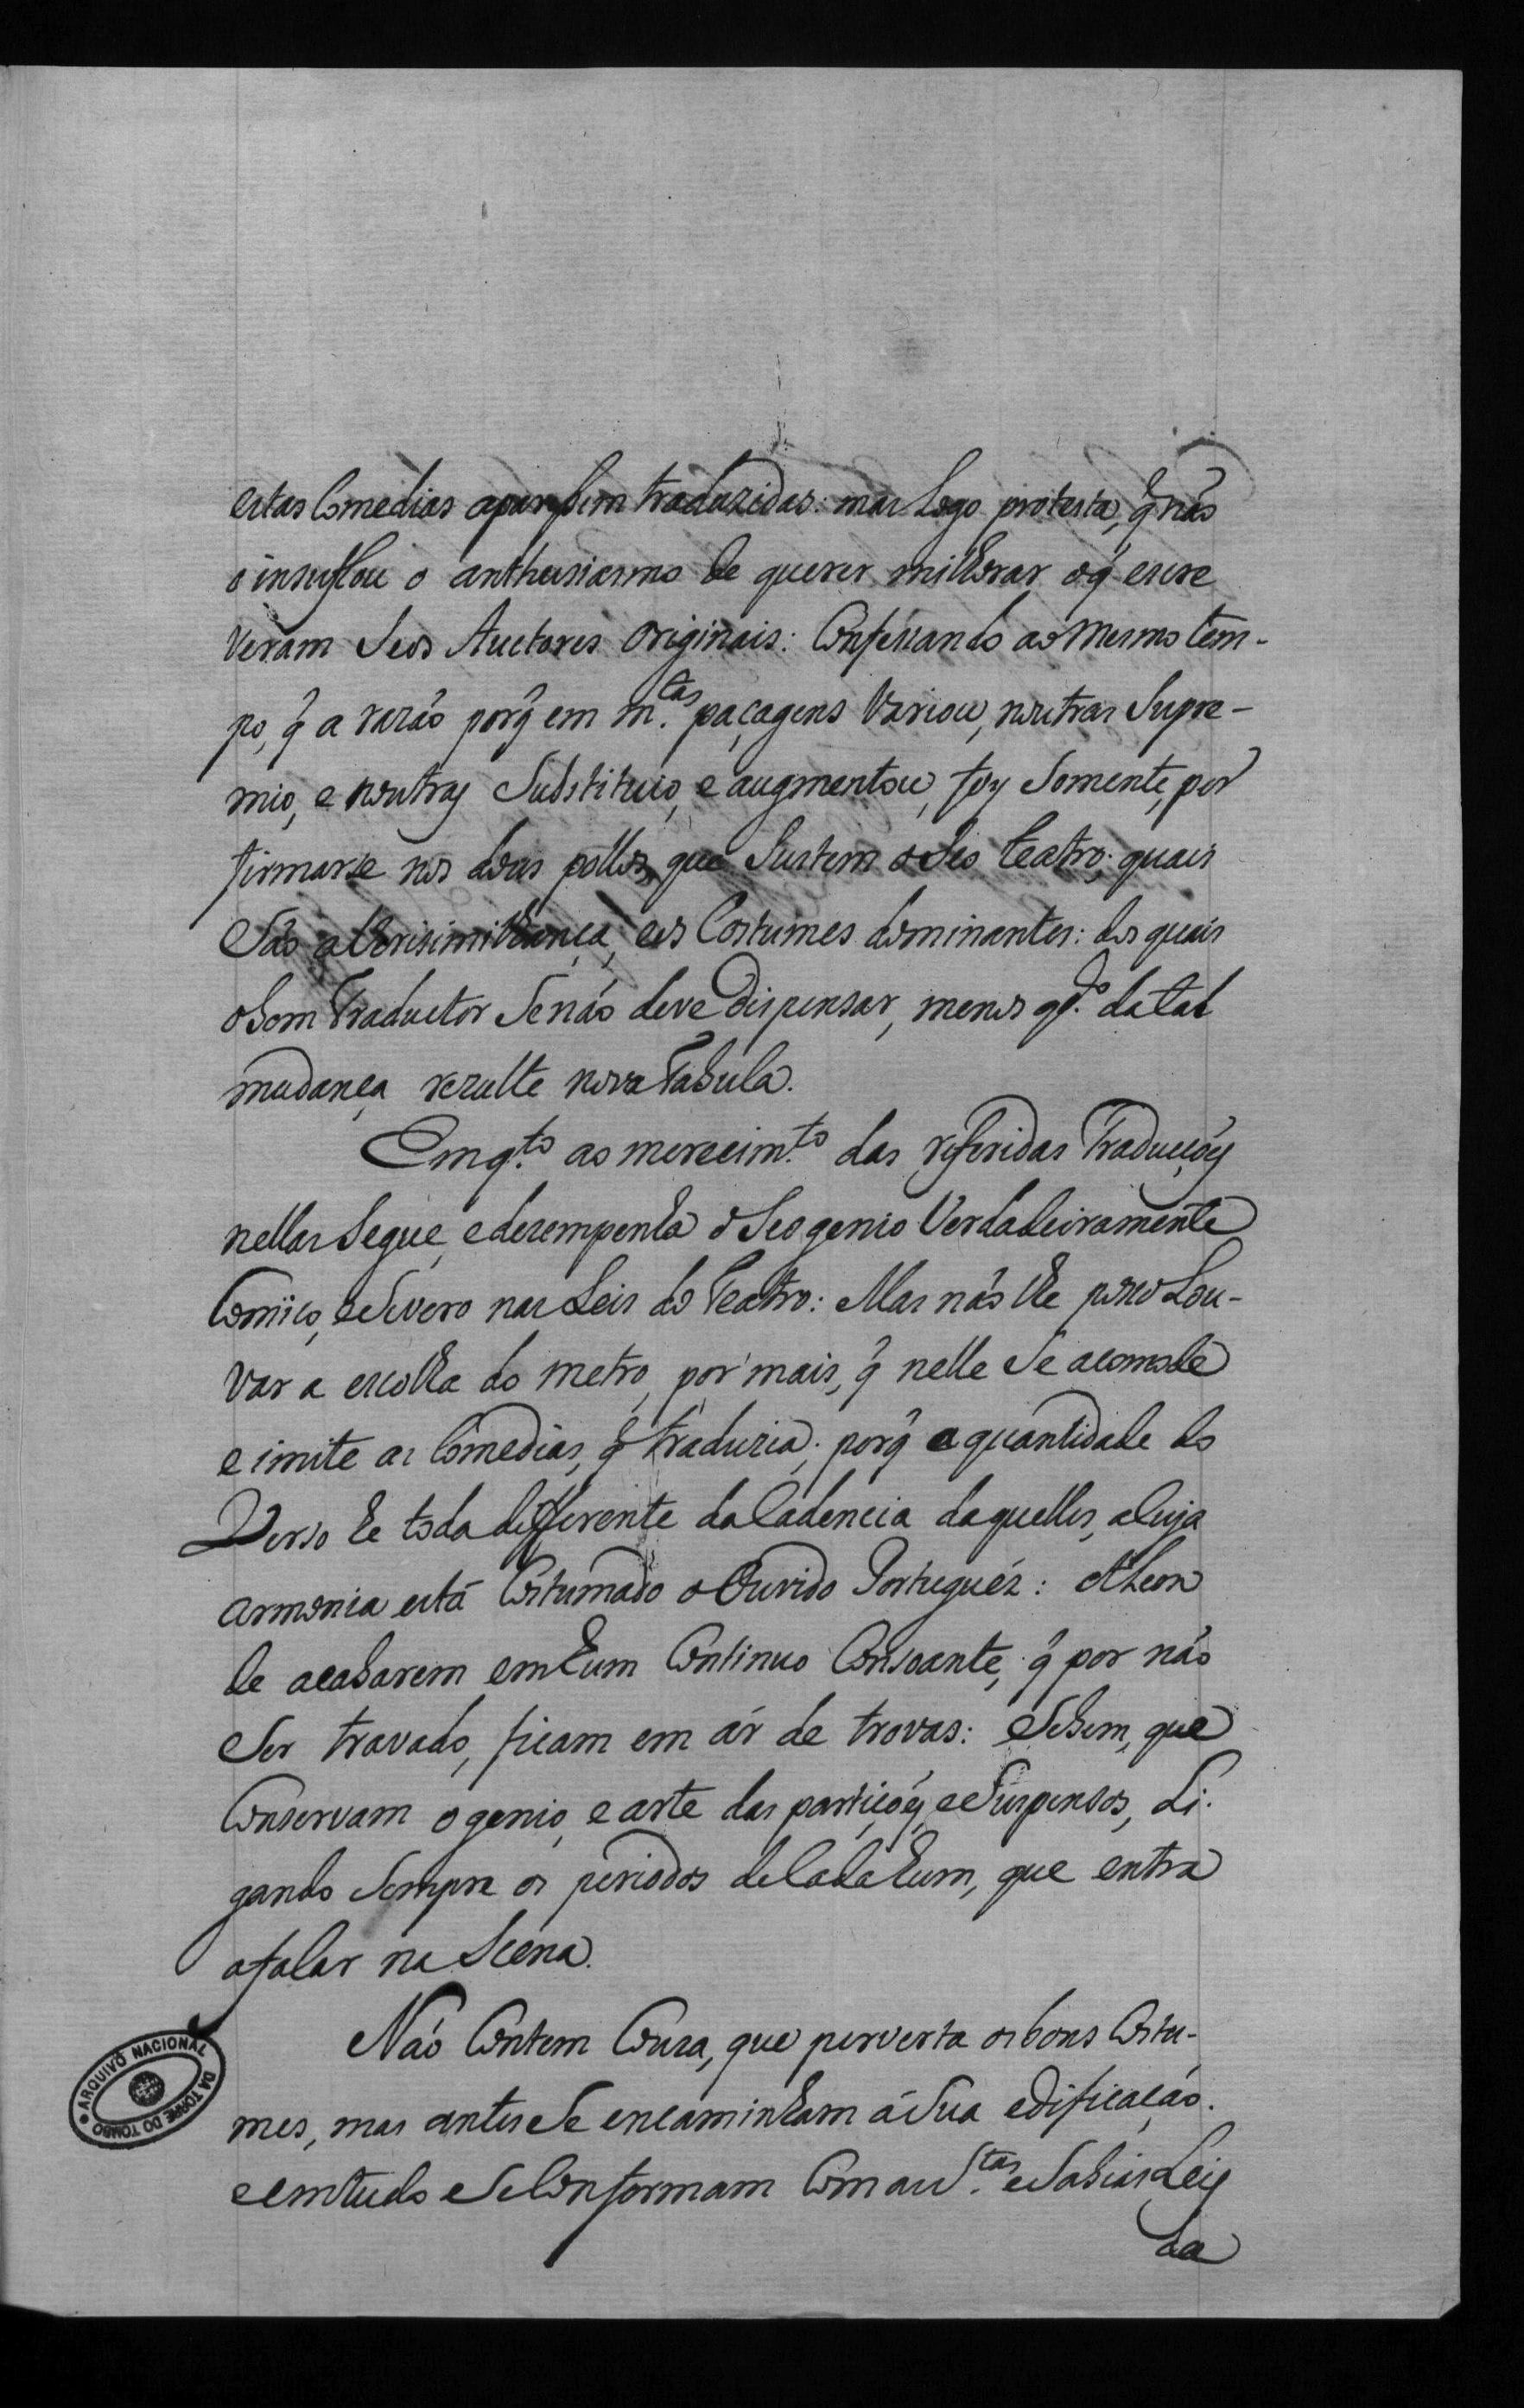 estas Comedias aparesem traduzidas: mas Logo protesta, q̃ não
o insuflou o anthusiasmo de querer milhorar o q̃ escre
veram Seos Auctores Originais: Confessando ao Mesmo tem-
po, q̃ a razão porq̃ em m.tas paçagens Variou, noutras Supre-
mio, e noutras Substituio, e augmentou, foy Somente, por
firmarse nos dous pollos, que Sustem o Seo teatro; quais
São a Verisimilhança, e os Costumes dominantes: dos quais
o bom Traductor Se não deve Dispensar, menos qd.o da tal
mudança rezulte nova Fabula.
Emq.to ao merecim.to das referidas Traducçoẽs
nellas Segue, e desempenha o Seo genio Verdadeiramente
Comico, e Severo nas Leis do Teatro: Mas não lhe poso Lou-
var a escolha do metro, por mais, q̃ nelle Se acomode
e imite as Comedias, q̃ traduzia; porq̃ a quantidade do
Verso he toda differente da Cadencia daquelles, a Cuja
armonia está Costumado o Ouvido Portuguéz: Alem
de acabarem em hum Continuo Consoante, q̃ por não
Ser travado, ficam em ár de trovas: Se bem, que
Conservam o genio, e arte das partiçoẽs, e Suspensos, Li-
gando Sempre os periodos de Cada hum, que entra
a falar na Scena.
Não Contem Couza, que perverta os bons Costu-
mes, mas antes Se encaminham á Sua edificação.
e em tudo Se Conformam Com as S.tas e Sabias Leis
da
ARQUIVO NACIONAL DA TORRE DO TOMBO